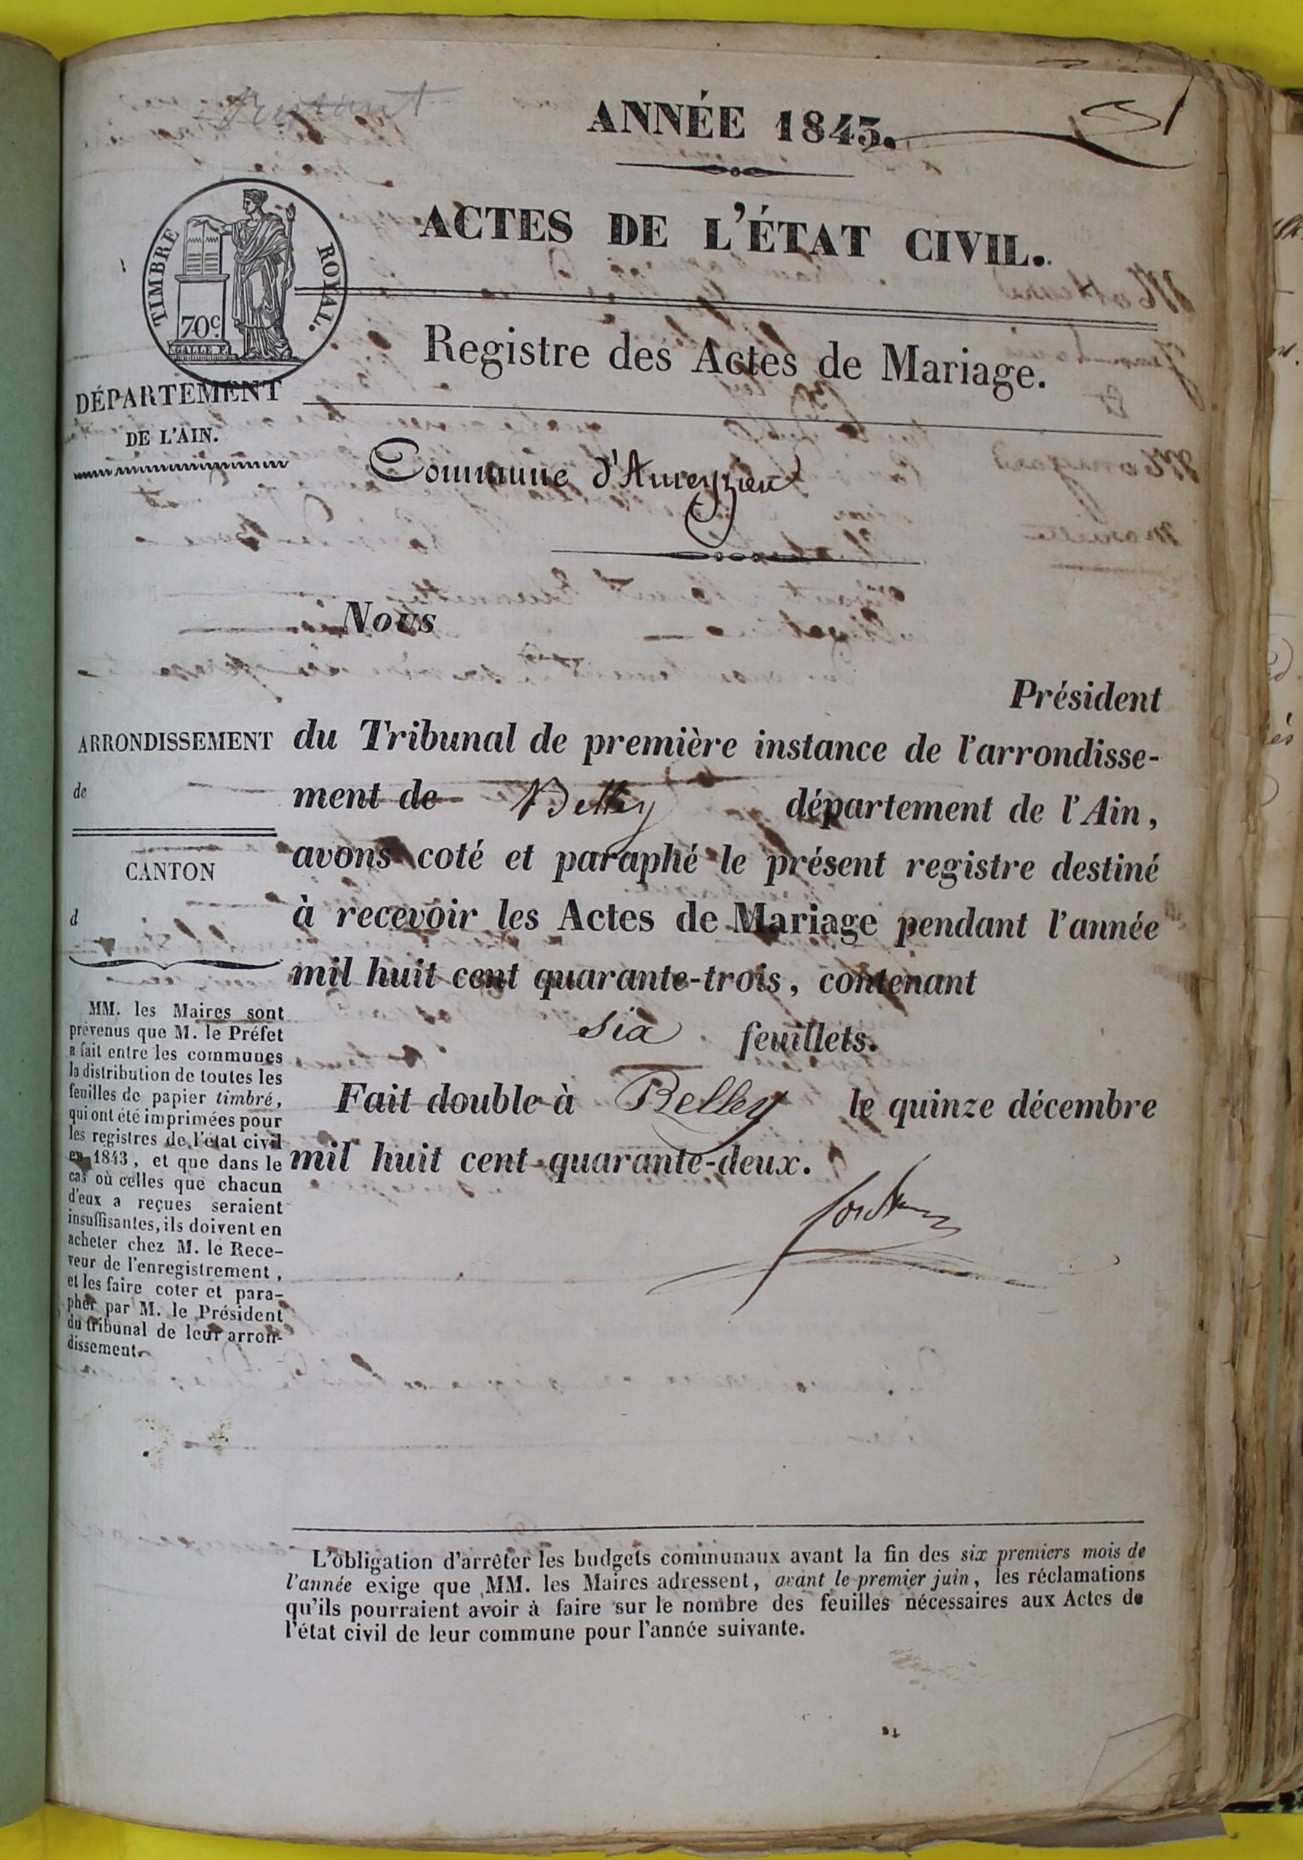 ANNÉE 1843.
ACTES DE L'ÉTAT CIVIL.
TIMBRE ROYAL.
70c
Registre des Actes de Mariage.
DÉPARTEMENT
DE L'AIN.
Commune d'Ameyzieu
Nous
Président
ARRONDISSEMENT
de
CANTON
d
du Tribunal de première instance de l'arrondisse-
ment de Belley département de l'Ain,
avons coté et paraphé le présent registre destiné
à recevoir les Actes de Mariage pendant l'année
mil huit cent quarante-trois, contenant
six feuillets.
Fait double à Belley le quinze décembre
mil huit cent quarante-deux.
MM. les Maires sont
prévenus que M. le Préfet
a fait entre les communes
la distribution de toutes les
feuilles de papier timbré,
qui ont été imprimées pour
les registres de l'état civil
en 1843, et que dans le
cas où celles que chacun
d'eux a reçues seraient
insuffisantes, ils doivent en
acheter chez M. le Rece-
veur de l'enregistrement,
et les faire coter et para-
pher par M. le Président
du tribunal de leur arron-
dissement.
L'obligation d'arrêter les budgets communaux avant la fin des six premiers mois de
l'année exige que MM. les Maires adressent, avant le premier juin, les réclamations
qu'ils pourraient avoir à faire sur le nombre des feuilles nécessaires aux Actes de
l'état civil de leur commune pour l'année suivante.